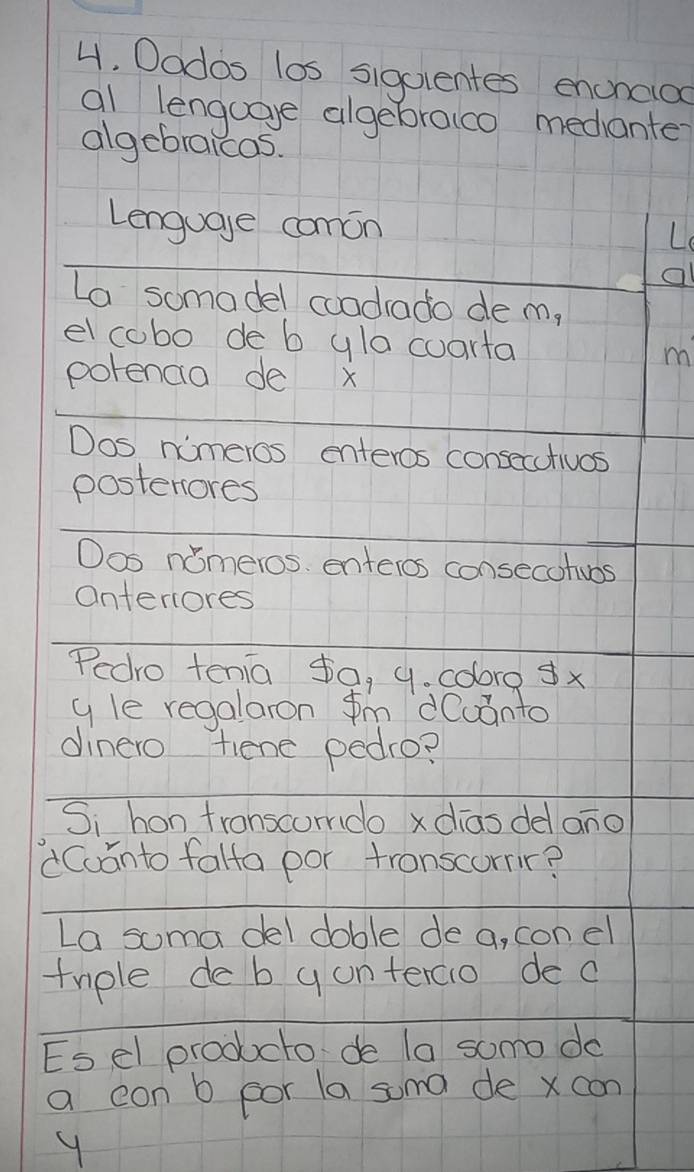 4. Dados los siguientes enunciad
al lenguaje algebraico mediante
algebraicas.
Lenguaje común
Le
al
La suma del cuadrado de m,
el cubo de b y la cuarta
potencia de x
m
Dos números enteros consecutivos
posteriores
Dos números enteros consecutivos
anteriores
Pedro tenía $a, y cobro $x
y le regalaron $m ¿Cuánto
dinero tiene pedro?
Si han transcurrido x días del año
¿Cuánto falta por transcurrir?
La suma del doble de a, con el
triple de b y un tercio de c
Es el producto de la suma de
a con b por la suma de x con
y